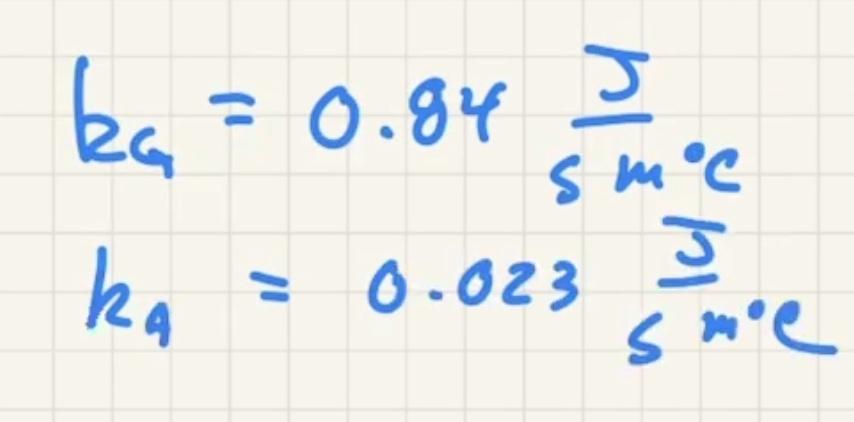 k_G = 0.84 J/(s m °C)
k_A = 0.023 J/(s m °C)